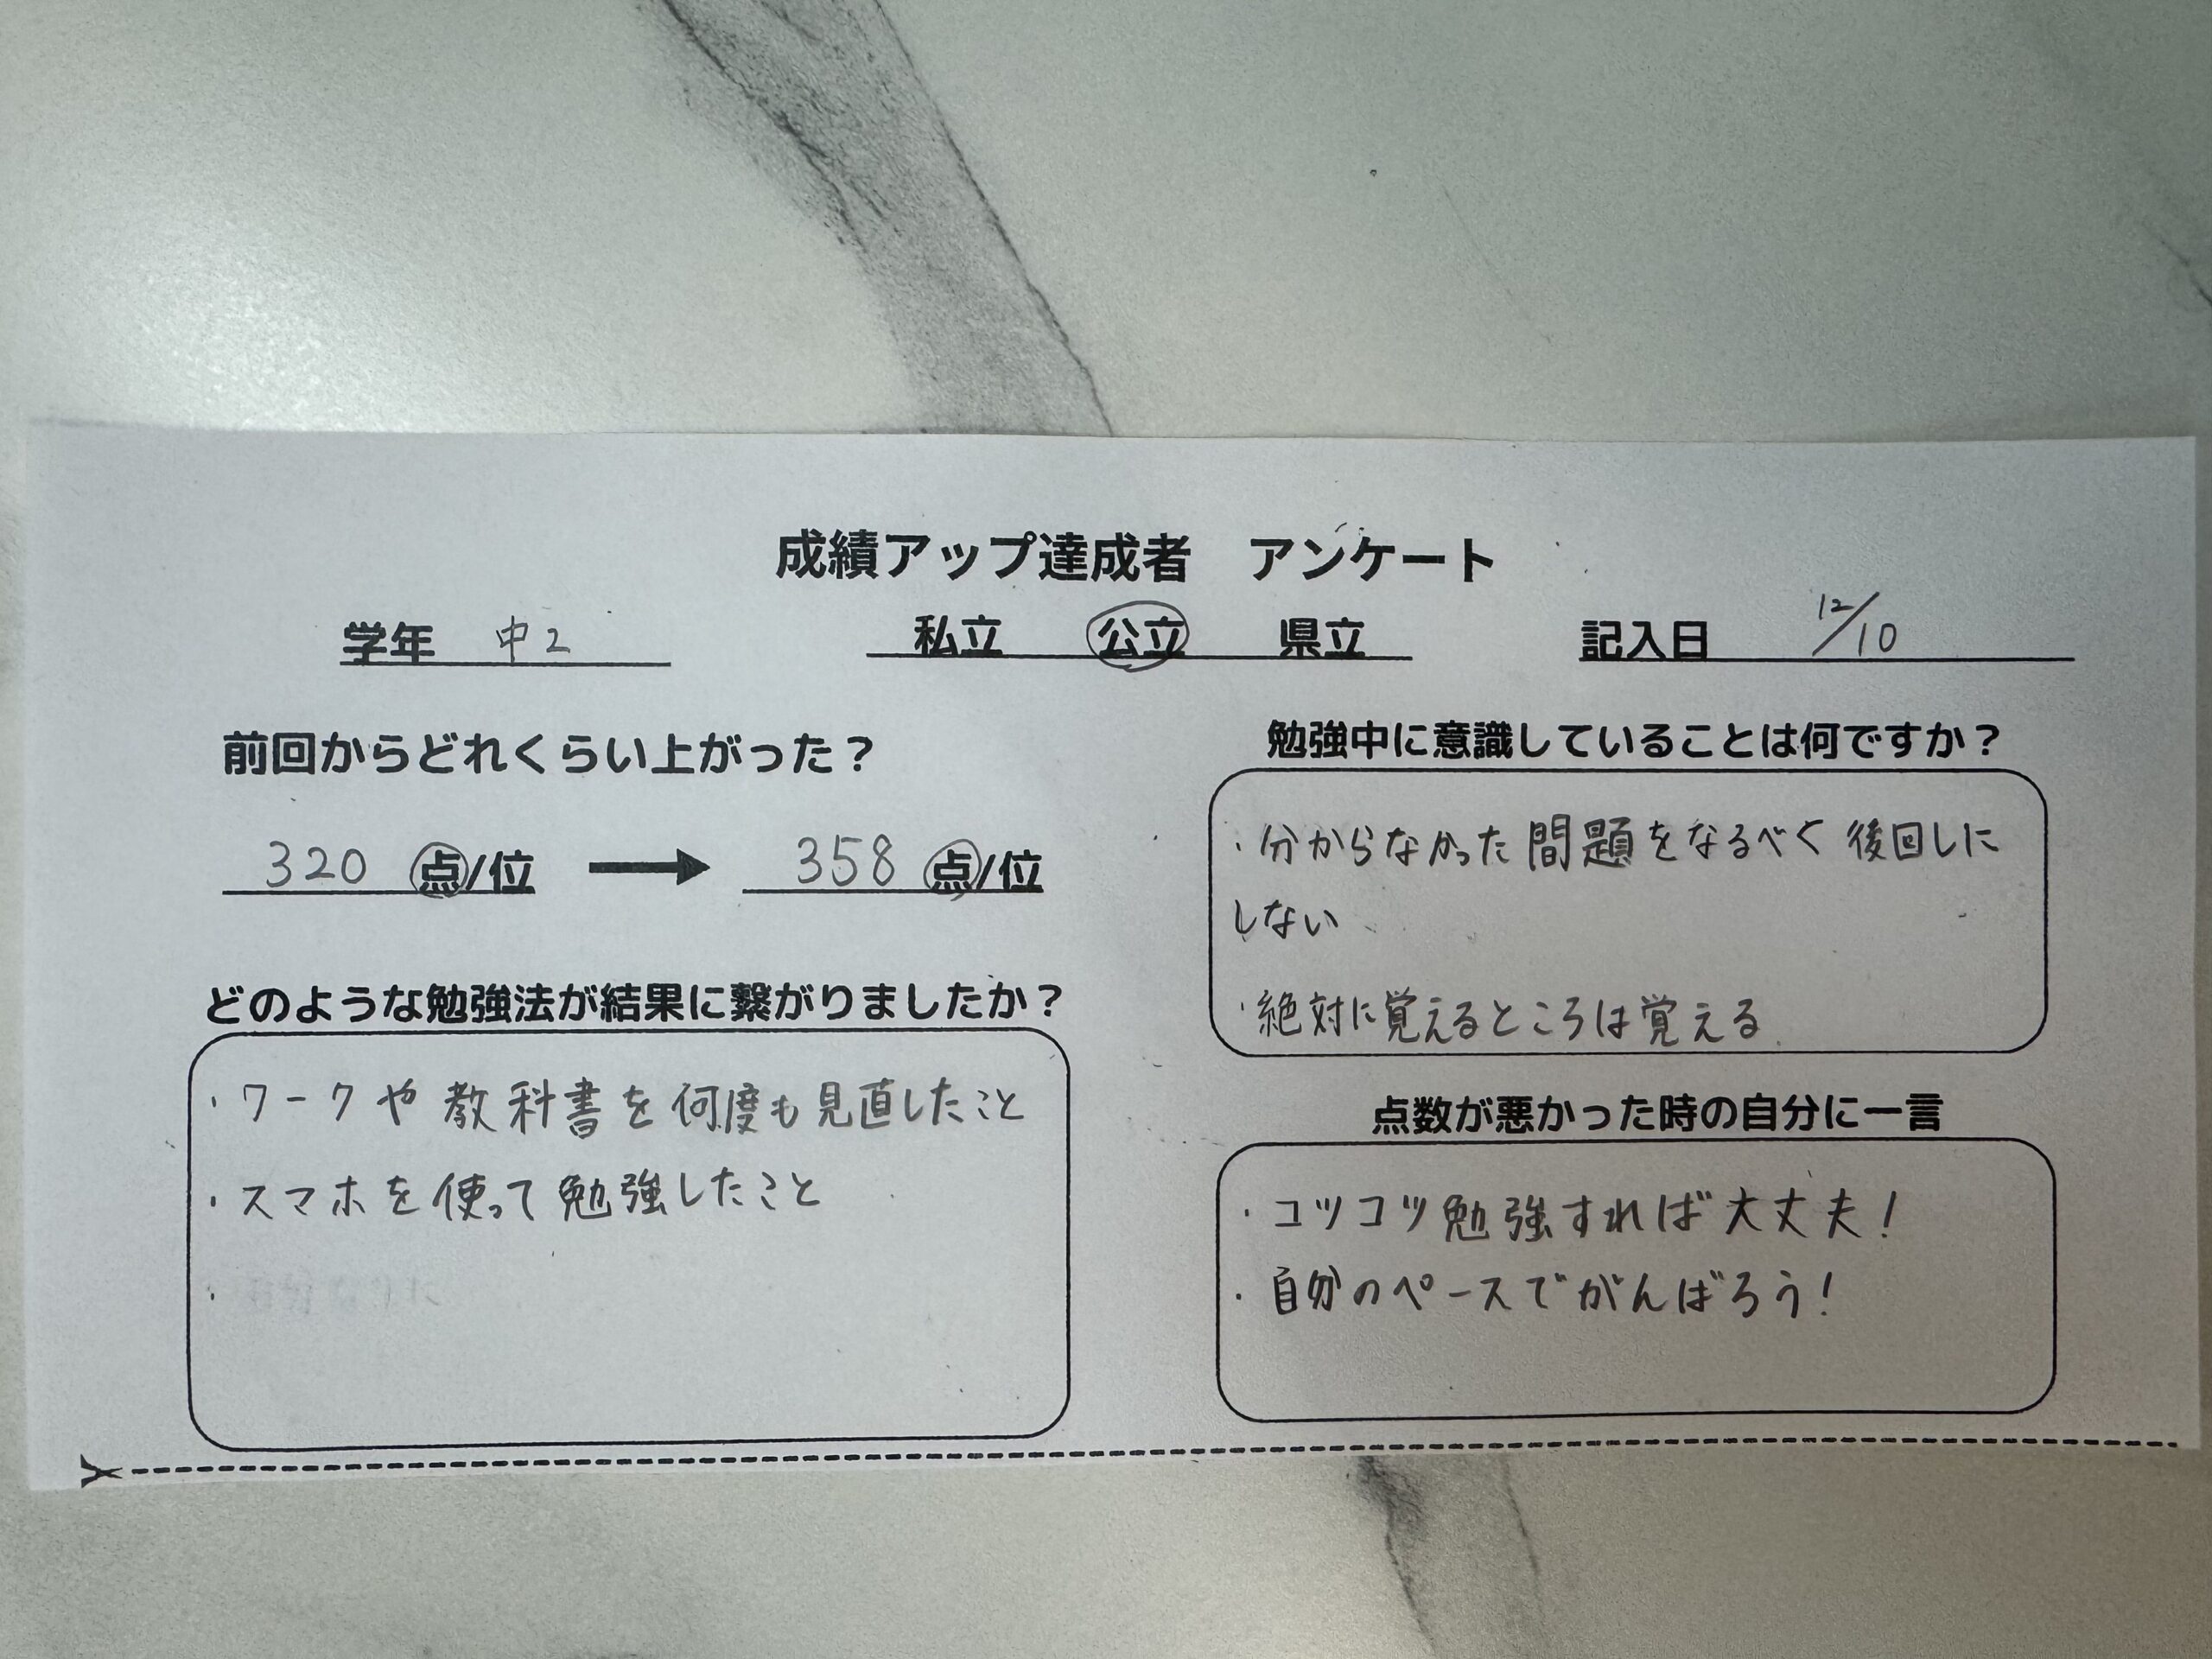 成績アップ達成者　アンケート
学年　中2
私立　公立　県立
記入日　12/10
前回からどれくらい上がった？
320 点/位 → 358 点/位
どのような勉強法が結果に繋がりましたか？
・ワークや教科書を何度も見直したこと
・スマホを使って勉強したこと
・
勉強中に意識していることは何ですか？
・分からなかった問題をなるべく後回しに
しない
・絶対に覚えるところは覚える
点数が悪かった時の自分に一言
・コツコツ勉強すれば大丈夫！
・自分のペースでがんばろう！